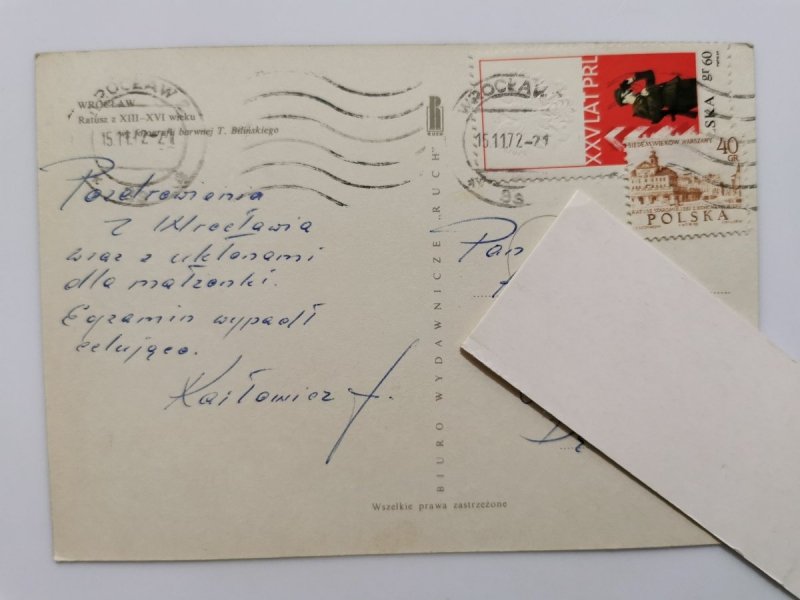 WROCŁAW
Ratusz z XIII-XVI wieku
wg fotografii barwnej T. Bilińskiego
WROCŁAW
15.11.72-21
Pozdrowienia
z Wrocławia
wraz z ukłonami
dla małżonki.
Egzamin wypadł
celująco.
BIURO WYDAWNICZE „RUCH"
RUCH
Wszelkie prawa zastrzeżone
WROCŁAW
15.11.72-21
XXV LAT PRL
POLSKA gr 60
SIEDEM WIEKÓW WARSZAWY
40
GR
POLSKA
Pan